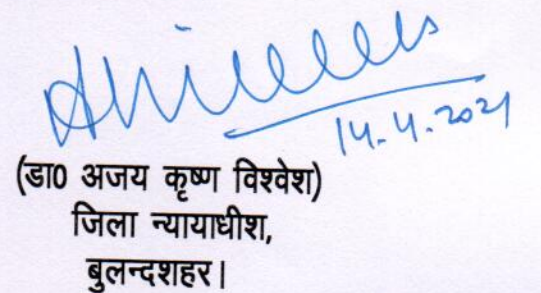 14.4.2021
(डा0 अजय कृष्ण विश्वेश)
जिला न्यायाधीश,
बुलन्दशहर।